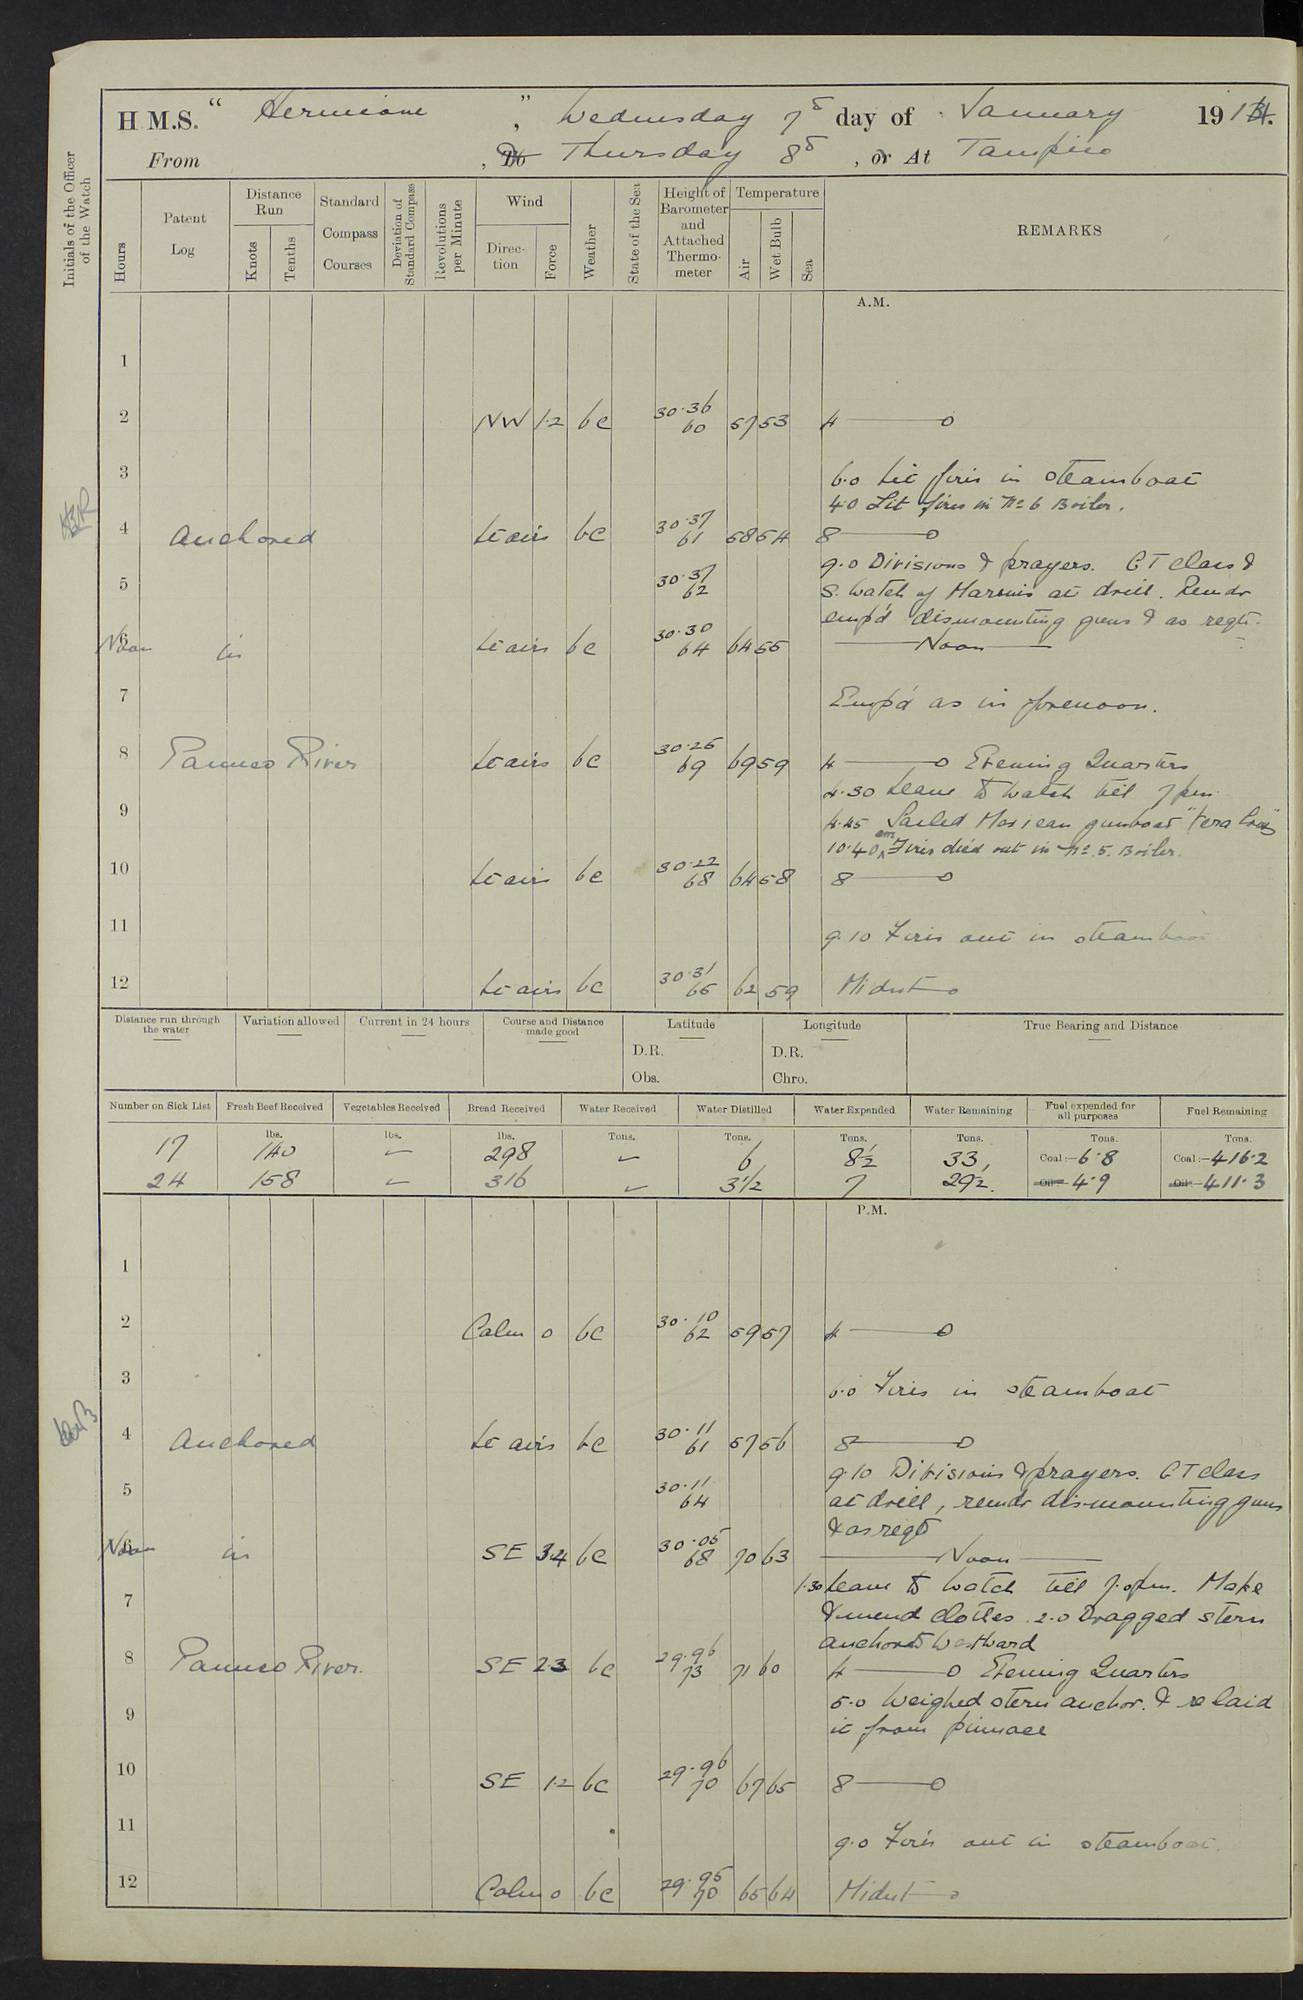 H.M.S. “ Hermione ” , Wednesday 7th day of January 1914.
From , To Thursday 8th , or At Tampico
Initials of the Officer of the Watch
Hours
Patent Log
Distance Run
Knots
Tenths
Standard Compass Courses
Deviation of Standard Compass
Revolutions per Minute
Wind
Direction
Force
Weather
State of the Sea
Height of Barometer and Attached Thermometer
Temperature
Air
Wet Bulb
Sea
REMARKS
A.M.
1
2 NW 1.2 bc 30.36 60 57 53 4
3 6.0 Lit fires in steamboat
4.0 Lit fires in No 6 Boiler.
4 Anchored Lt airs bc 30.37 61 58 54 8
9.0 Divisions & prayers. GT class &
5 30.37 62 S. watch of Marines at drill. Remdr
emp'd dismounting guns & as reqte.
6 Noon in Lt airs bc 30.30 64 64 55 Noon
7 Emp'd as in forenoon.
8 Panuco River Lt airs bc 30.26 69 69 59 4 Evening Quarters
4.30 Leave to watch till 7 pm
9 4.45 Sailed Mexican gunboat "Vera Cruz"
10.40 am Fires died out in No 5. Boiler.
10 Lt airs bc 30.22 68 64 58 8
11 9.10 Fires out in steamboat
12 Lt airs bc 30.31 65 62 59 Midnt
Distance run through the water
Variation allowed
Current in 24 hours
Course and Distance made good
Latitude
D.R.
Obs.
Longitude
D.R.
Chro.
True Bearing and Distance
Number on Sick List
Fresh Beef Received
Vegetables Received
Bread Received
Water Received
Water Distilled
Water Expended
Water Remaining
Fuel expended for all purposes
Fuel Remaining
lbs. lbs. lbs. Tons. Tons. Tons. Tons. Tons. Tons.
17 140 298 6 8½ 33, Coal:—6.8 Coal:—416.2
24 158 316 3½ 7 29½. Oil— 4.9 Oil:—411.3
P.M.
1
2 Calm 0 bc 30.10 62 59 57 4
3 6.0 Fires in steamboat
4 Anchored Lt airs bc 30.11 61 57 56 8
9.10 Divisions & prayers. GT class
5 30.11 64 at drill, remdr dismounting guns
& as reqd
6 Noon in SE 3.4 bc 30.05 68 70 63 Noon
1.30 Leave to watch till 7.0 pm. Make
7 & mend clothes. 2.0 Dragged stern
anchor to Westward
8 Panuco River. SE 2.3 bc 29.96 73 71 60 4 Evening Quarters
5.0 Weighed stern anchor. & relaid
9 it from pinnace
10 SE 1.2 bc 29.96 70 67 65 8
11 9.0 Fires out in steamboat.
12 Calm 0 bc 29.95 70 65 64 Midnt